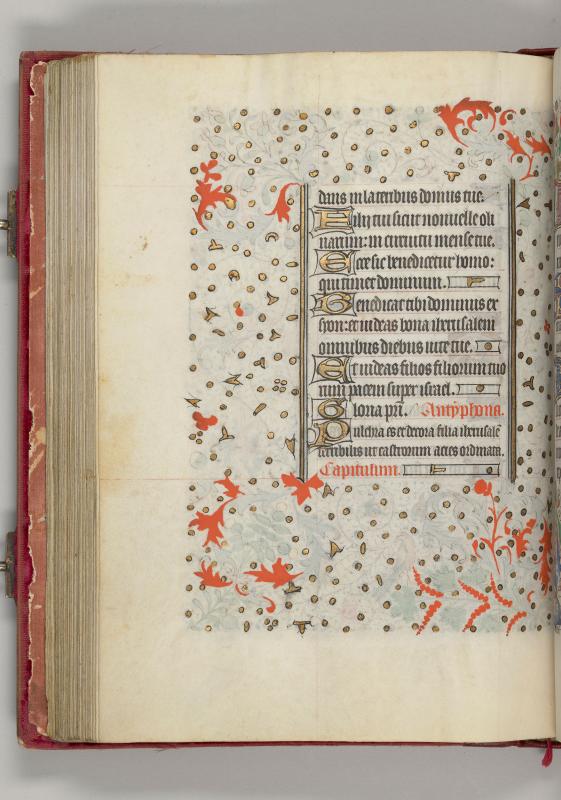 dans in lateribus domus tue.
Filii tui sicut nouelle oli
uarum: in circuitu mense tue.
Ecce sic benedicetur homo:
qui timet dominum.
Benedicat tibi dominus ex
syon: et uideas bona iherusalem
omnibus diebus uite tue.
Et uideas filios filiorum tuo
rum pacem super israel.
Gloria pri. Antyphona.
Pulchra es et decora filia iherusale
terribilis ut castrorum acies ordinata.
Capitulum.